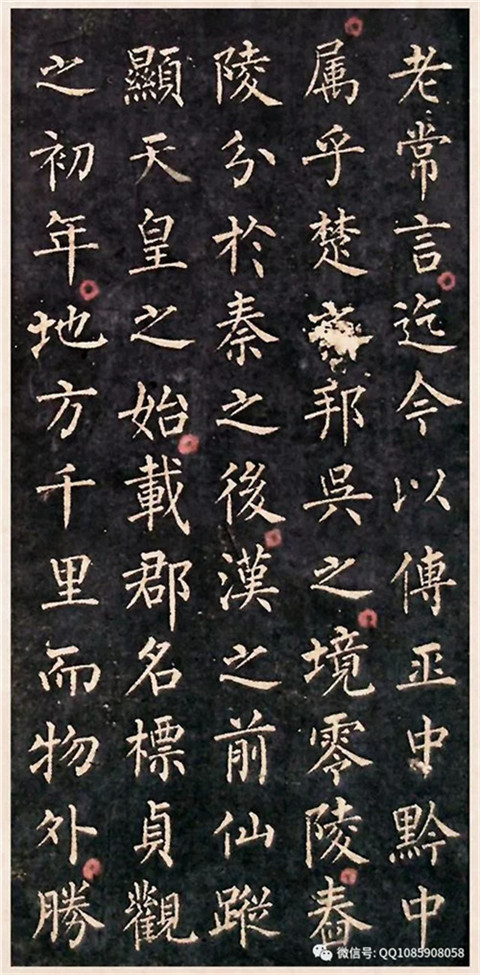 老常言迄今以傳巫中黔中
属乎楚邦吳之境零陵舂
陵分於秦之後漢之前仙蹤
顯天皇之始載郡名標貞觀
之初年地方千里而物外勝
微信号: QQ1085908058